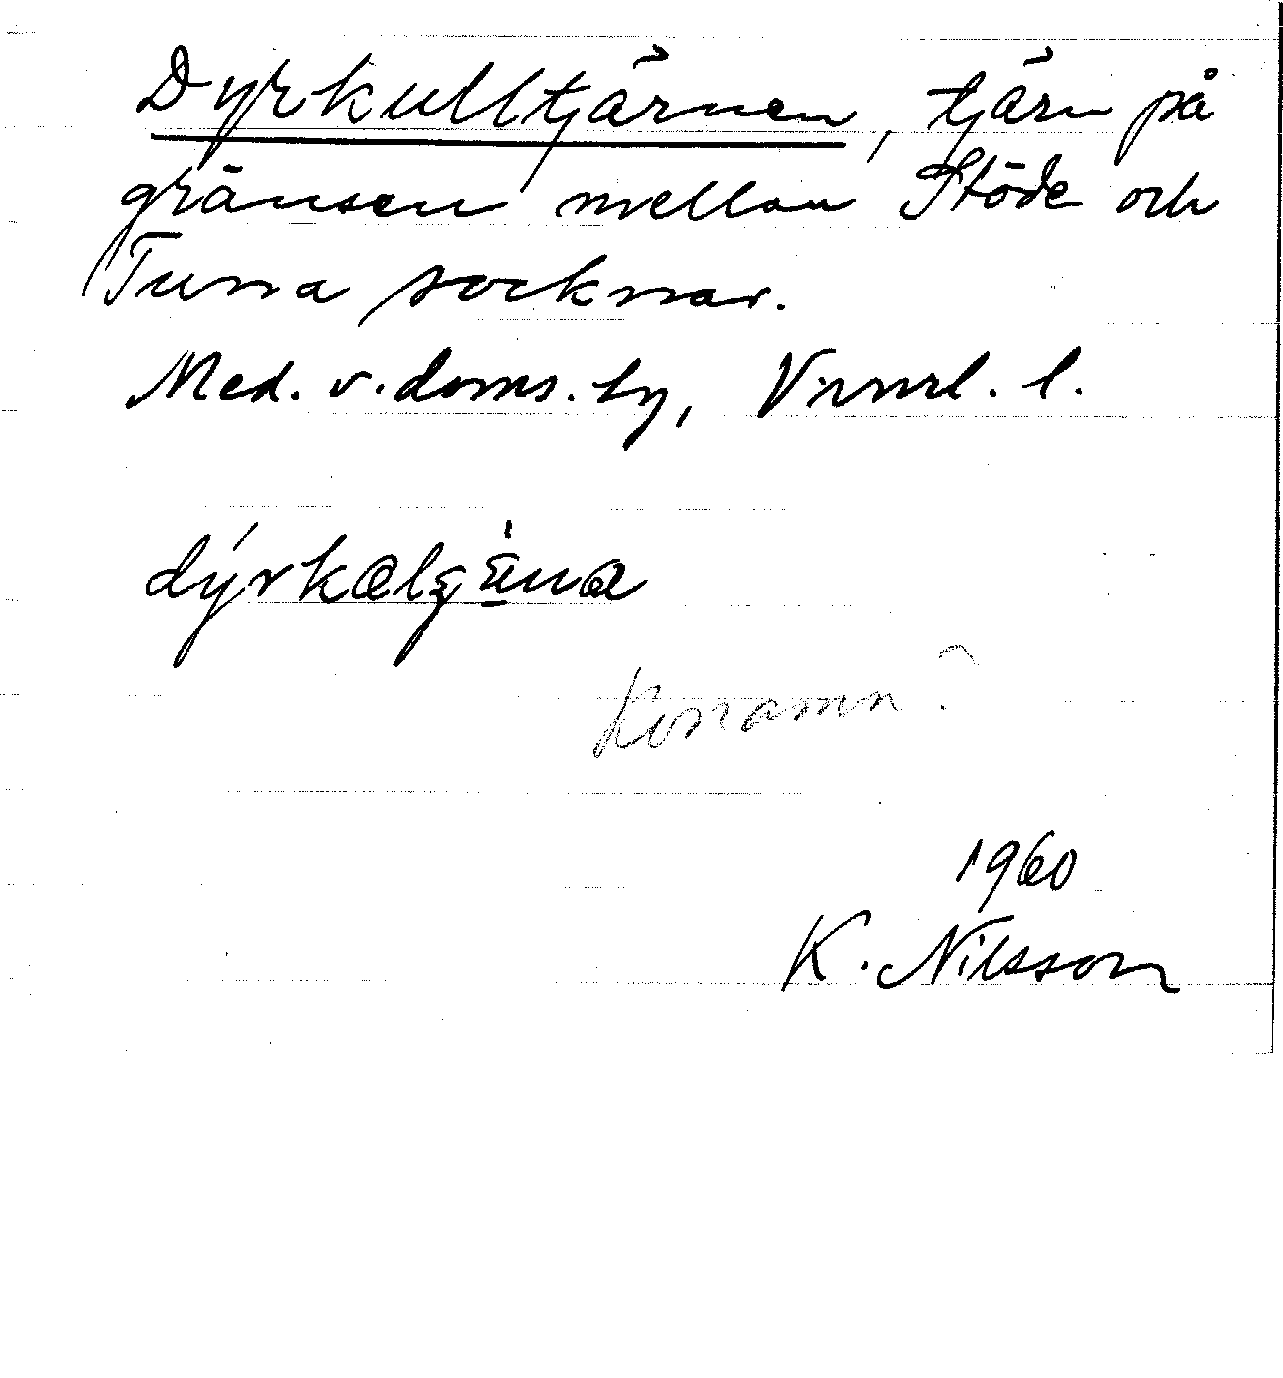 Dyrkulltjärnen, tjärn på
gränsen mellan Stöde och
Tuna socknar.
Med. v. doms. by, Vnnrl. l.
Konamn?
1960
K. Nilsson